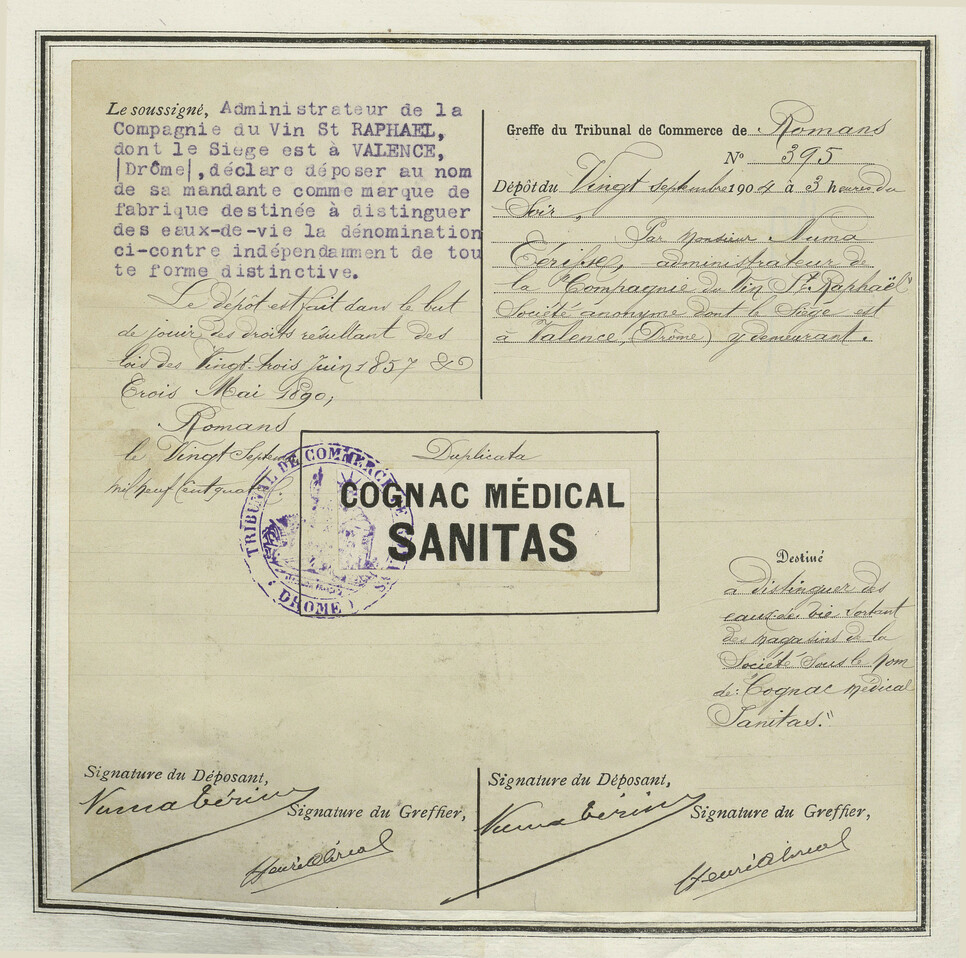 Le soussigné, Administrateur de la
Compagnie du Vin St RAPHAEL,
dont le Siege est à VALENCE,
|Drôme|, déclare déposer au nom
de sa mandante comme marque de
fabrique destinée à distinguer
des eaux-de-vie la dénomination
ci-contre indépendamment de tou
te forme distinctive.
Le dépôt est fait dans le but
de jouir des droits résultant des
lois des Vingt-trois Juin 1857 &
Trois Mai 1890,
Romans
le Vingt Septem
mil neuf Cent quat
Greffe du Tribunal de Commerce de Romans
N° 395
Dépôt du Vingt septembre 1904 à 3 heures du
Soir,
Par Monsieur Numa
administrateur de
la "Compagnie du Vin St Raphaël"
Société anonyme dont le Siège est
à Valence, (Drôme) y demeurant.
Duplicata
COGNAC MÉDICAL
SANITAS
TRIBUNAL DE COMMERCE DE
(DROME)
Destiné
à distinguer des
eaux-de-vie sortant
des magasins de la
Société sous le nom
de: "Cognac médical
Sanitas."
Signature du Déposant,
Numa
Signature du Greffier,
Henri
Signature du Déposant,
Numa
Signature du Greffier,
Henri